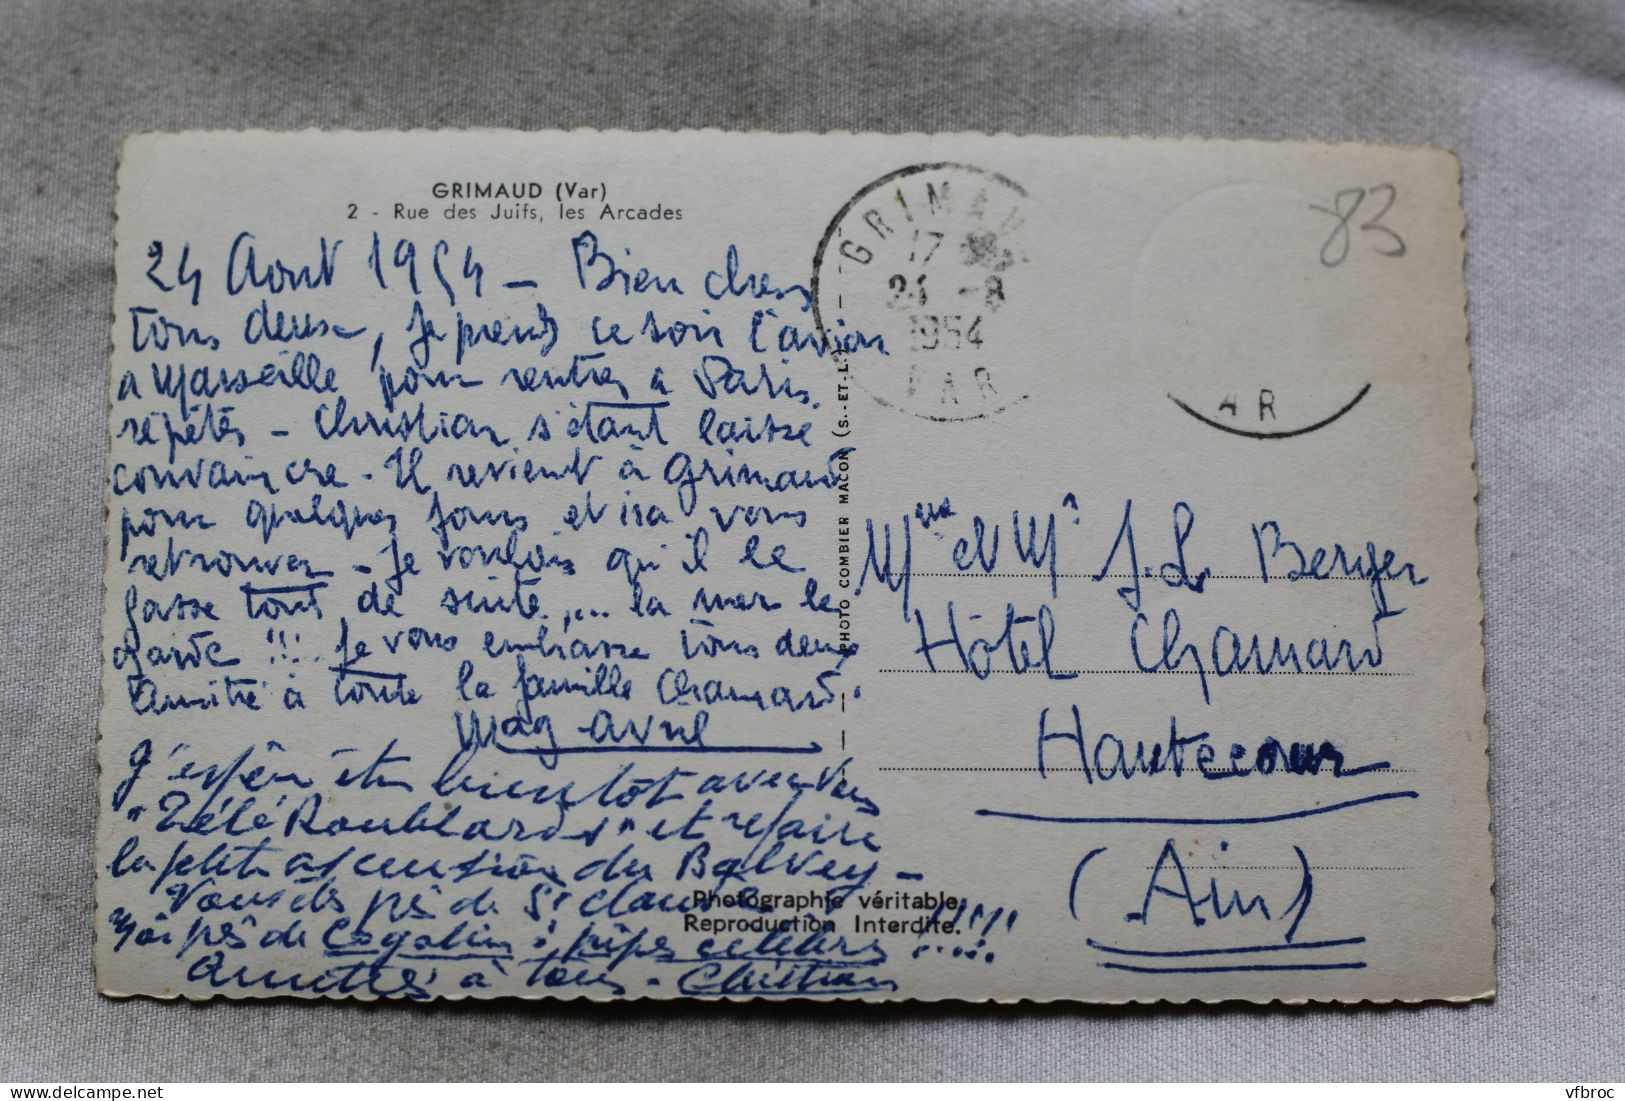 GRIMAUD (Var)
2 - Rue des Juifs, les Arcades
24 Aout 1954 - Bien chers
tous deux, Je prends ce soir l'avion
a Marseille pour rentrer a Paris.
répétés - Christian s'étant laissé
convaincre. Il revient à Grimaud
pour quelques jours et ira vous
retrouver - Je voulais qu'il le
fasse tout de suite,... la mer le
garde !!! Je vous embrasse tous deux
Amitié à toute la famille Chamard.
Mag-Avril
J'espère être bientôt avec vous
et refaire
la petite ascension du
Vous êtes près de St Claude
Moi près de Cogolin à pipes célèbres !!!!!
Amitiés à tous - Christian
PHOTO COMBIER MACON (S.-ET-L.)
Photographie véritable.
Reproduction Interdite.
GRIMAUD
17
24 -8
1954
VAR
AR
83
Mme et Mr J.L. Berger
Hôtel Chamard
Hautecour
(Ain)
vfbroc
delcampe.net